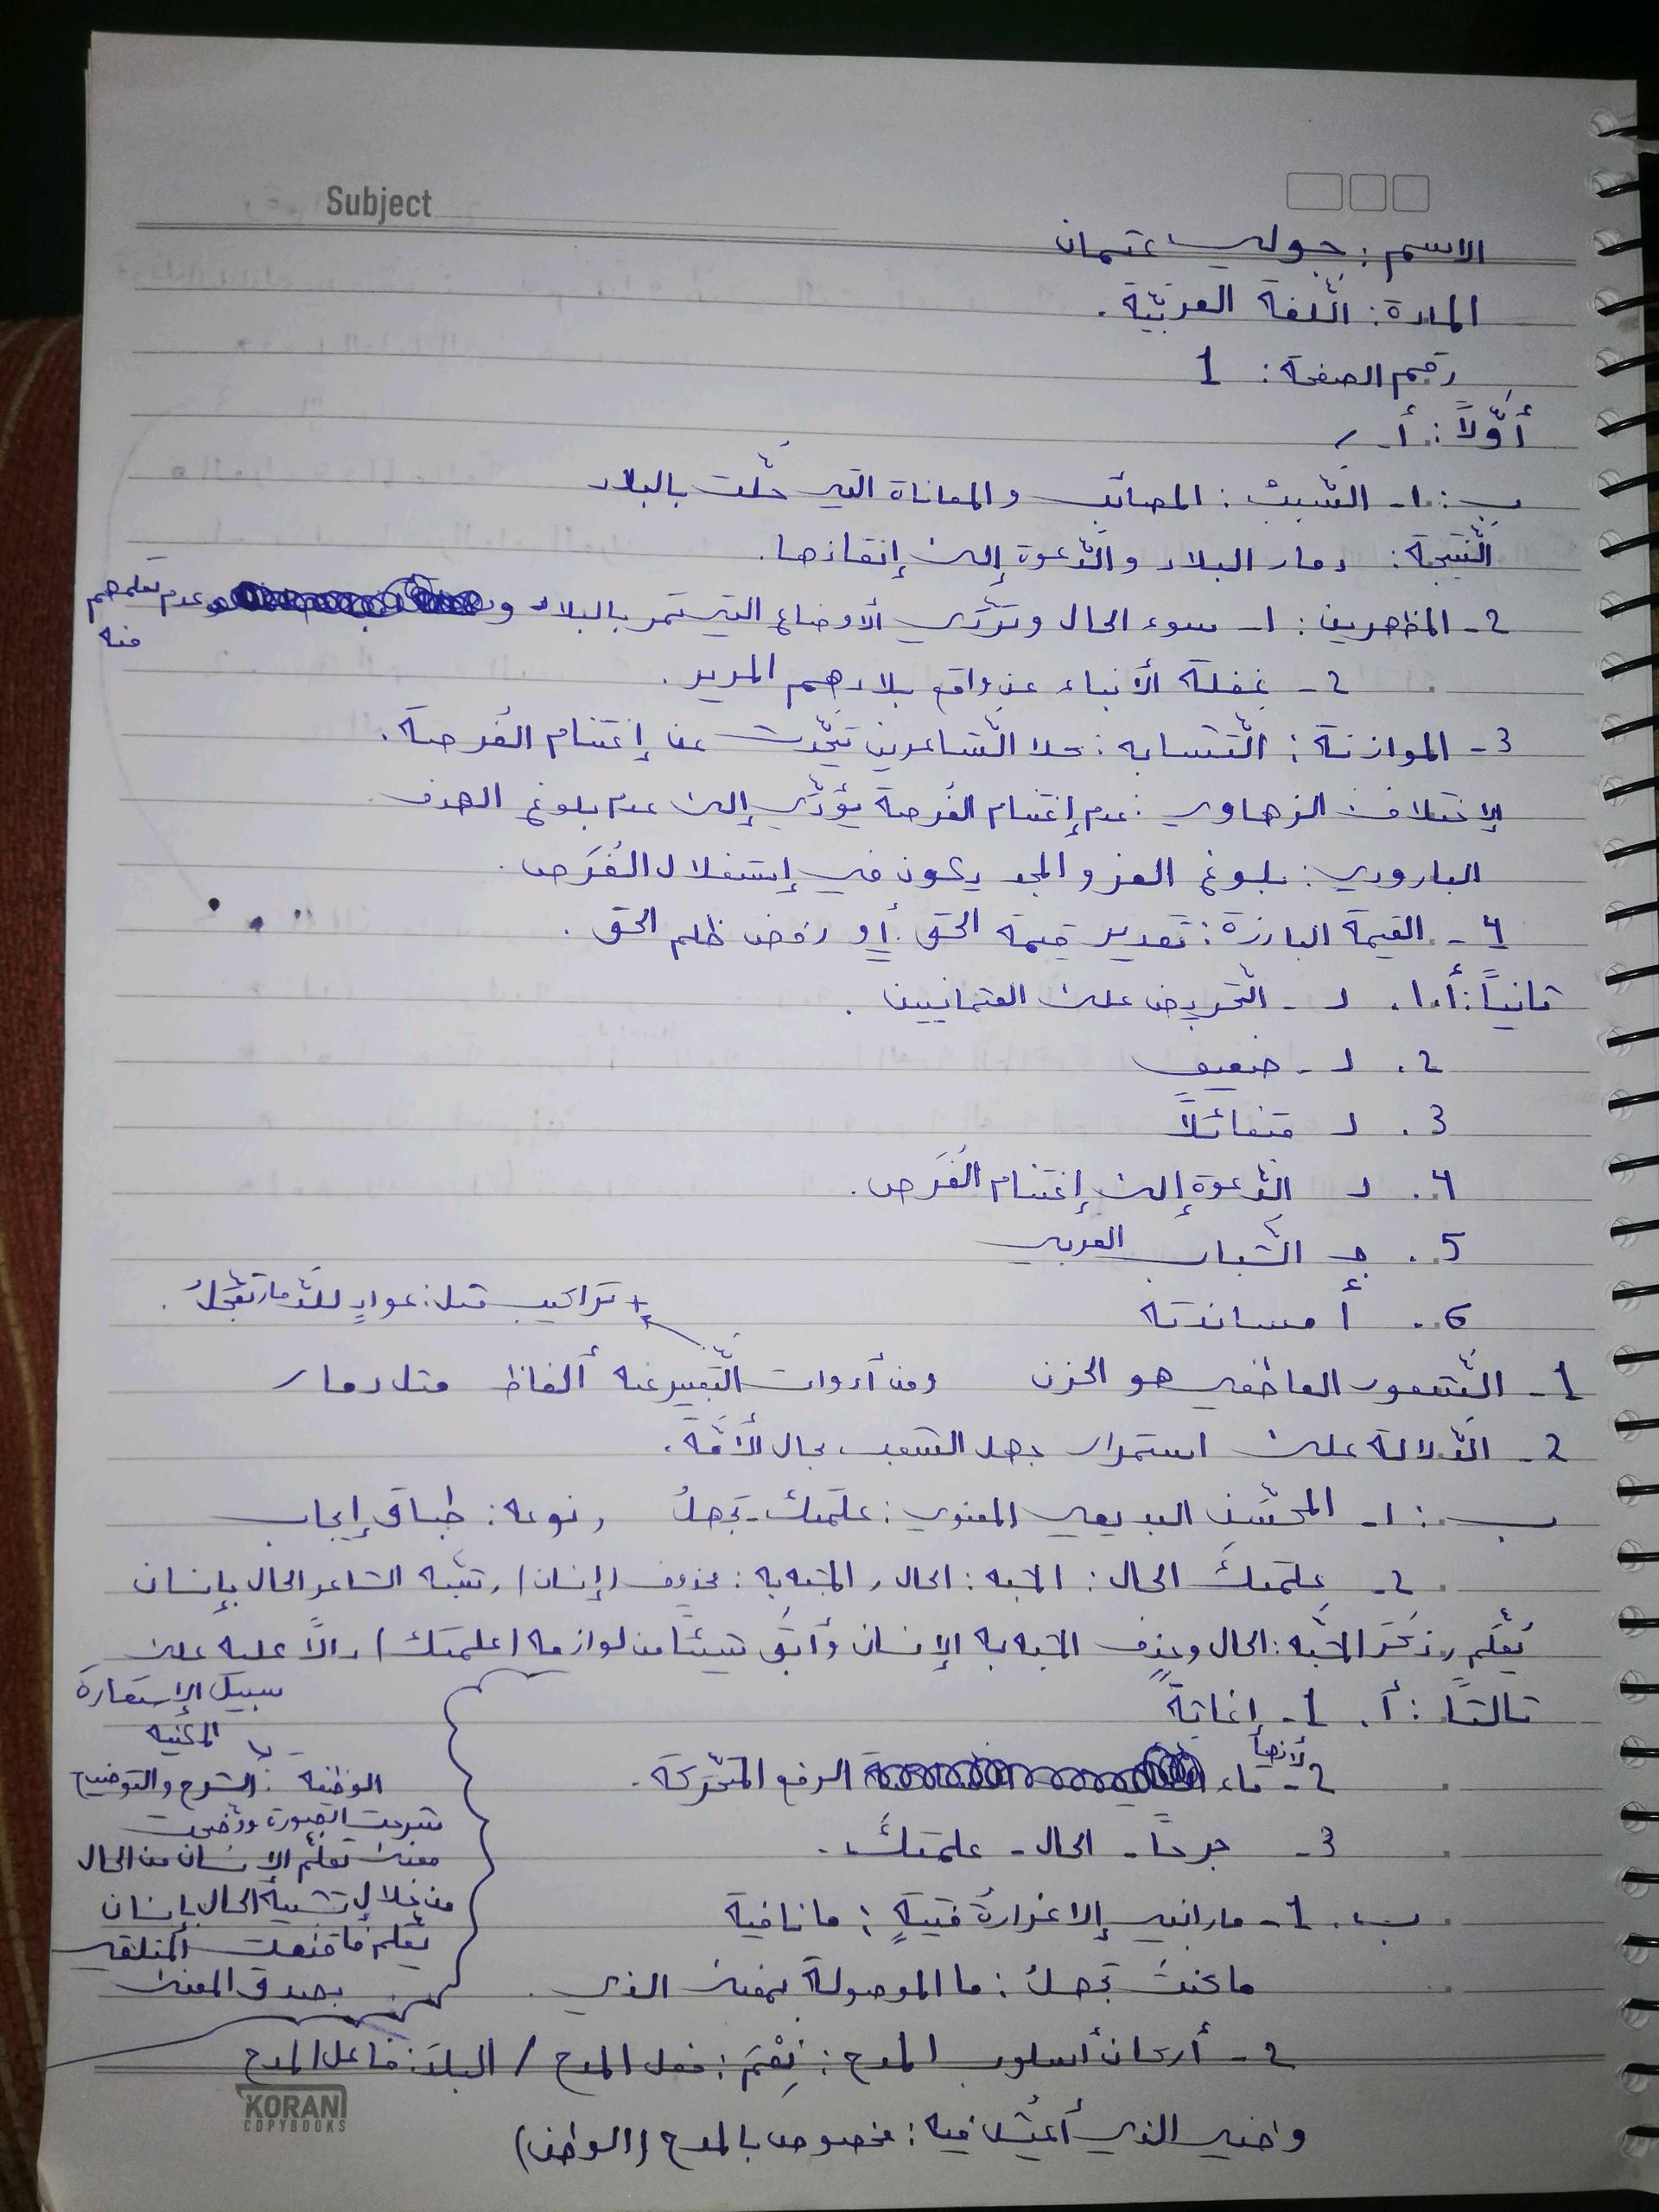 Subject
الاسم: جولي عثمان
المادة: اللّغة العربيّة.
رقم الصفحة: 1
أوّلاً: أ- ر
ب: 1- السّبب: المصائب والمعاناة التي حلّت بالبلاد
النّتيجة: دمار البلاد والدّعوة إلى إنقاذها.
2- المظهرين: 1- سوء الحال وتردّي الأوضاع التي تمر بالبلاد و وعدم تعلمهم
منه
2- غفلة الأبناء عن واقع بلادهم المرير.
3- الموازنة: التّشابه: كلا الشّاعرين تحّدث عن إغتنام الفُرصة.
الإختلاف الزهاوي: عدم إغتنام الفُرصة يؤدّي إلى عدم بلوغ الهدف
البارودي: بلوغ العز والمجد يكون في إستغلال الفُرَص.
4- القيمة البارزة: تقدير قيمة الحق. أو رفض ظلم الحق.
ثانياً: أ. 1. د- التّحريض على العثمانيين.
2. د- ضعيف
3. د متفائلاً
4. د الدّعوة إلى إغتنام الفُرَص.
5. ج الشّباب العربي
6. أ مساندته
+ تراكيب مثل: عوادٍ للدّمار تعجّلُ.
1- الشّعور العاطفي هو الحزن ومن أدوات التّعبير عنه ألفاظ مثل دمار
2- الدّلالة على استمرار جهل الشعب بحال الأمّة.
ب: 1- المحسّن البديعي المعنوي: علّمتك - تجهلُ ونوعه: طباق إيجاب
2- علّمتكَ الحال: المشبه: الحال, المشبه به: محذوف (إنسان), شبّه الشاعر الحال بإنسان
يُعلّم, ذكَرَ المشبّه: الحال وحذف المشبه به الإنسان وأبقى شيئاً من لوازمه (علمتك) دالّاً عليه على
سبيل الإستعارة
المكنية
ثالثاً: أ. 1- إغاثة
لأنها
2- تاء الرفع المتحّركة.
الوظيفة: الشرح والتوضيح
شرحت الصورة ووضّحت
معنى تعلّم الإنسان من الحال
من خلال تشبيه الحال بإنسان
يعلّم فأقنعت المتلقي
بصدق المعنى
3- جرحاً- الحال- علمتكَ.
ب. 1- ما رابني إلا غرارةُ فتيةٍ: ما نافية
ما كنتَ تجهلُ: ما الموصولة بمعنى الذي.
2- أركان أسلوب المدح: نِعْمَ: فعل المدح / البلدُ: فاعل المدح
وطني الذي أعيشُ فيه: مخصوص بالمدح (الوطن)
KORANI
COPYBOOKS